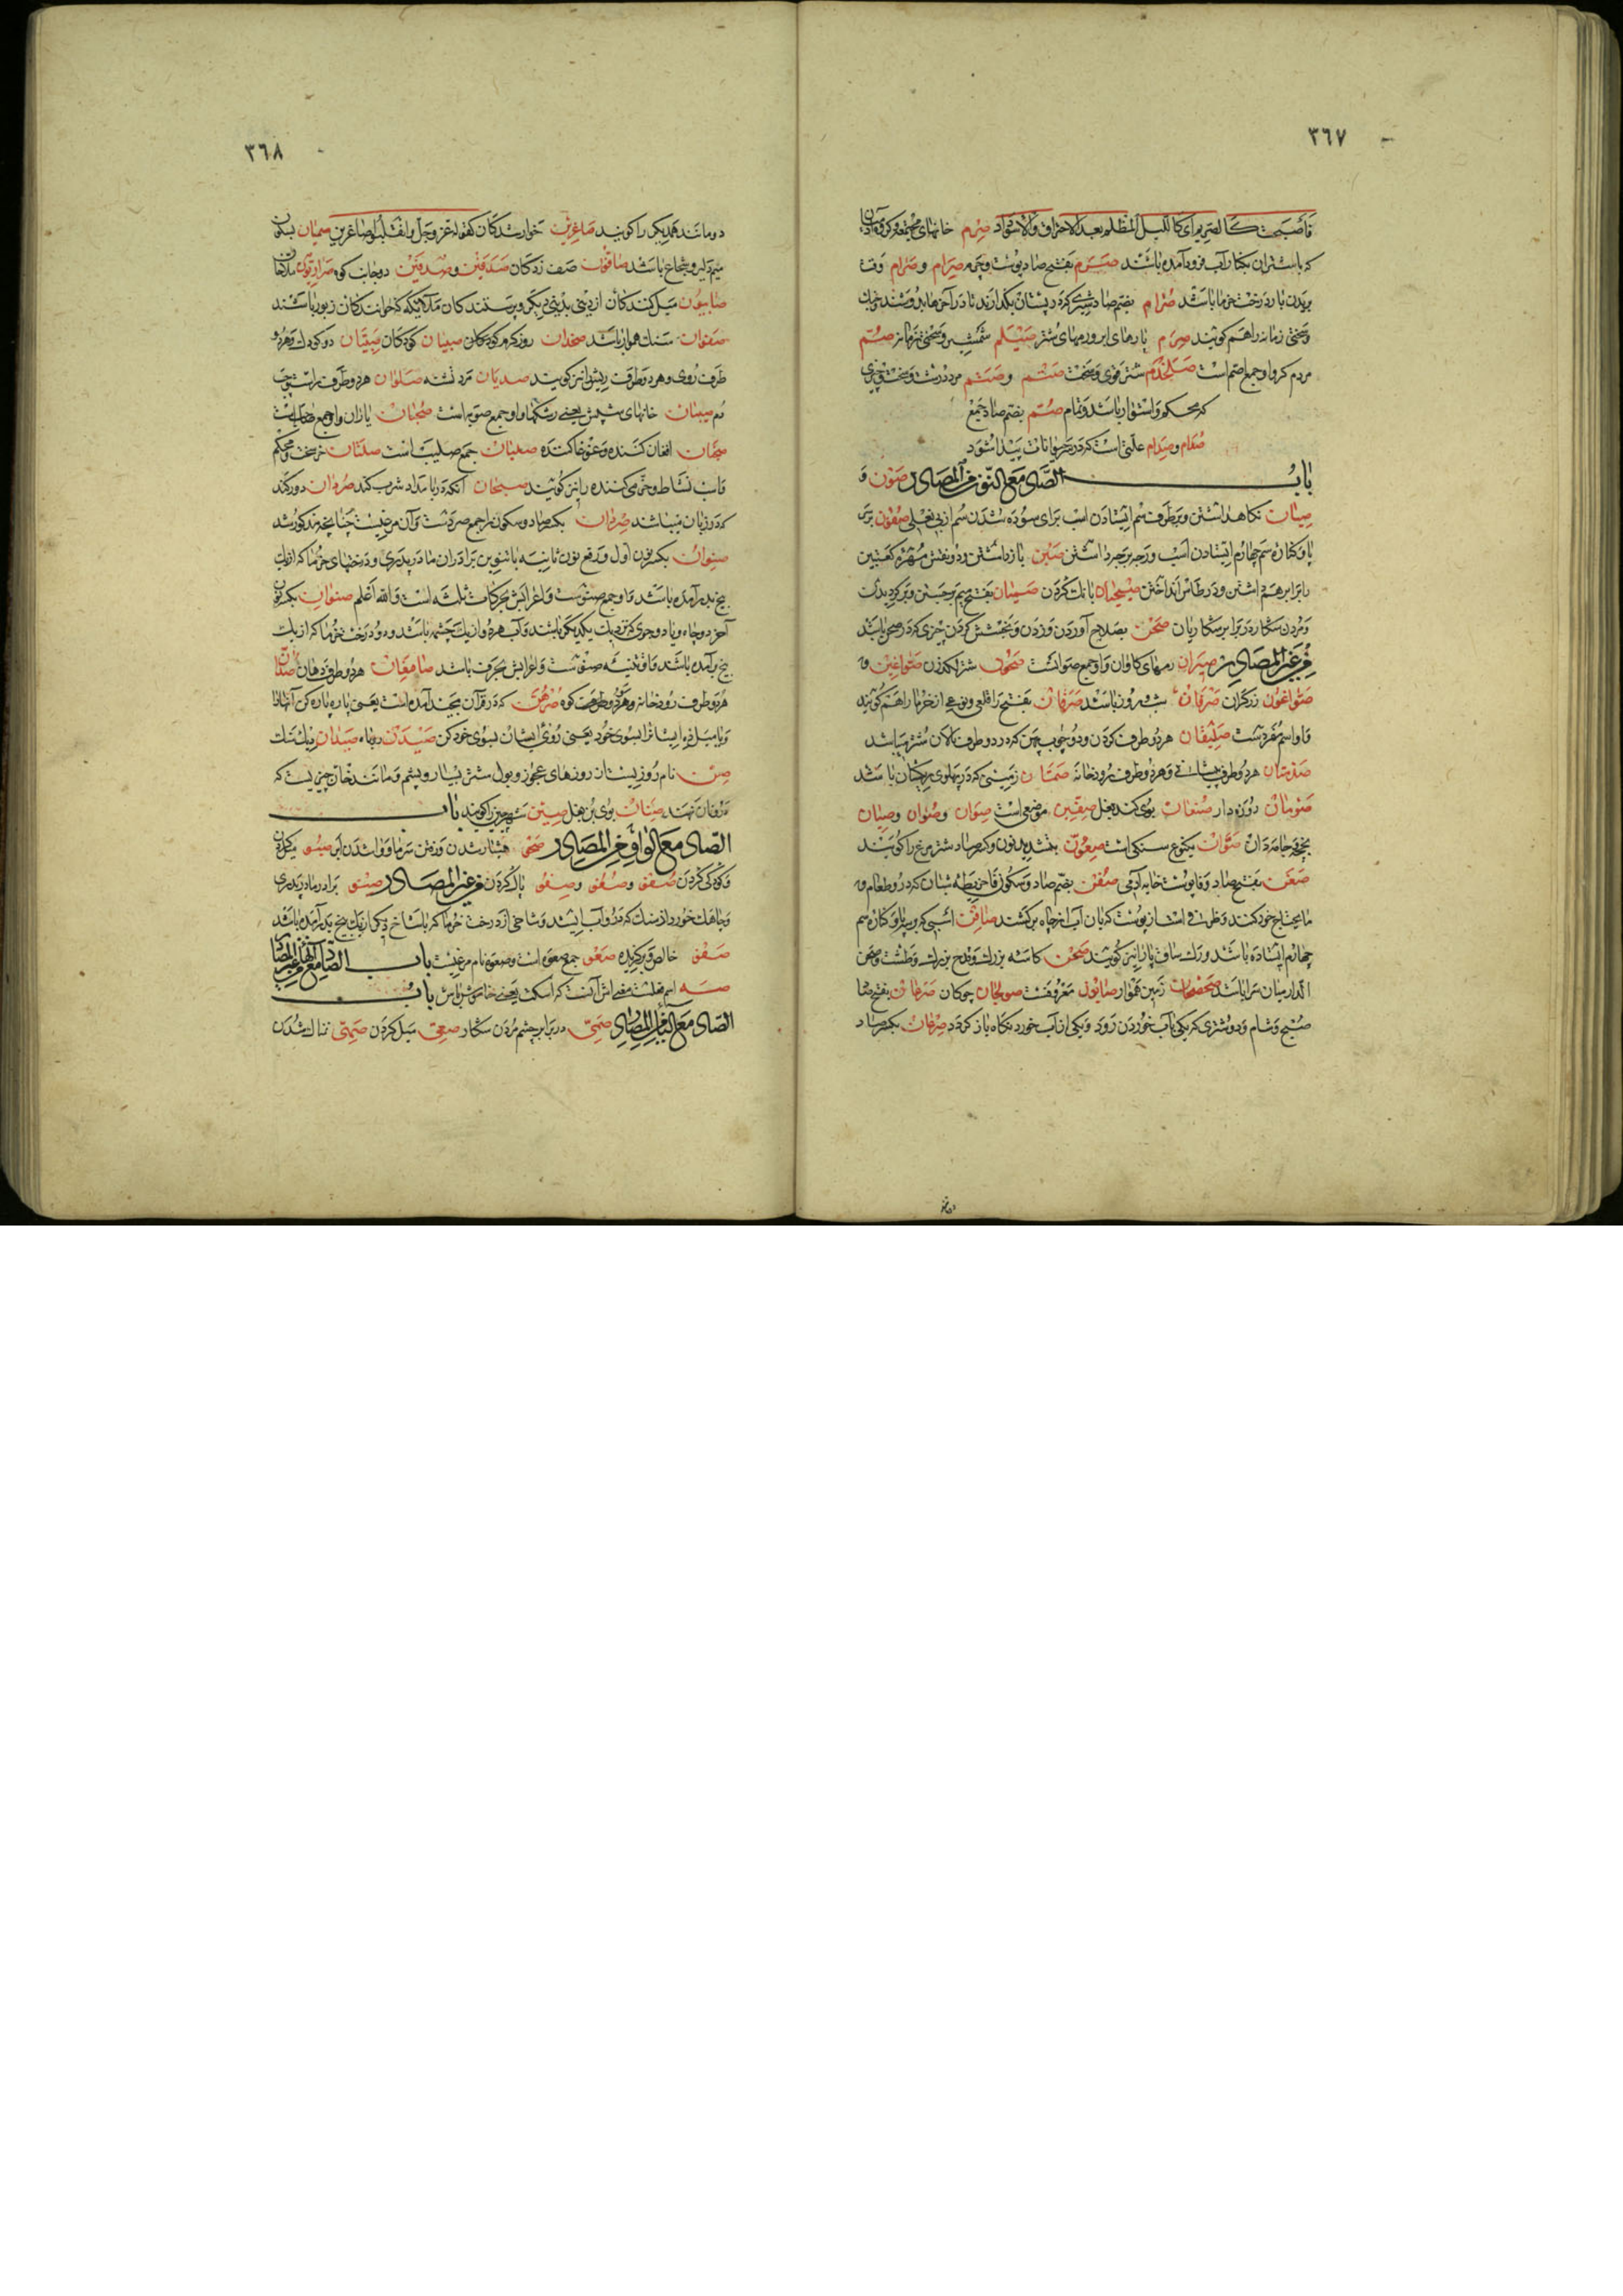 ٣٦٧
فاصبحت كالصريم اى كالليل المظلم بعد الاحتراق والاسوداد صرم خانهاى مجتمعه و كروه آدميان
كه باشتران بكنار آب فرود آمده باشند صرم بفتح صاد پوست و چرم صرام و صرام وقت
بريدن بار درخت خرما باشد صرام بضم صاد شيرى كه در پستان بكذارند تا در آخر
وسختى زمانه را هم كويند صرم پارهاى ابر و رمهاى شتر صيلم شمشير وسختى زمانه صم
مردم كر واو جمع اصم است صلخدم شتر قوى وسخت صتم و صتم مرد درشت وسخت و چيزى
كه محكم واستوار باشد و تمام صتم بضم صاد جمع
صدام و صدام علتى است كه در حيوانات پيدا شود
باب الصاد مع النون من المصادر صون و
صيان نكاهداشتن و بر طرف سم ايستادن اسب براى سوده شدن سم از بى نعلى صفون بر سر
پا و كناره سم چهارم ايستادن اسب صبن بازداشتن و دو نقش مهره كعبتين
را برابر هم داشتن و در طاس انداختن صيحان بانك كردن صميان بفتح ميم برجستن و بركرديدن
و مردن شكار در برابر شكاريان صحن بصلاح آوردن و زدن و بخشش كردن چيزى كه در صحن باشد
من غير المصادر صيران رمهاى كاوان واو جمع صوار است صحون شتر لكدزن صواغين و
صواغون زركران صرفان شب و روز باشد صرفان بفتح را قلعى و نوعى از خرما را هم كويند
واو اسم مفرد است صليفان هر دو طرف كردن و دو چوب پهن كه در دو طرف پالان شتر ميباشد
صدمتان هر دو طرف پيشانى و هر دو طرف رودخانه صمتان زمينى كه در پهلوى ريكستان باشد
صومان روزه دار صنعان بوى كند بغل صفين موضعى است صوان و صوان و صيان
بخچه جامه دان صوان يكنوع سنكى است صعون بتشديد نون و كسر صاد شتر مرغ را كويند
صفن بفتح صاد و فا پوست خايه آدمى صفن بضم صاد و سكون فا خريطه شبان كه در و طعام و
مايحتاج خود كنند و ظرفى است از پوست كه بان آب از چاه بركشند صافن اسبى كه بر سر پا و كناره سم
چهارم ايستاده باشد و رك ساق پا را نيز كويند صحن كاسه بزرك و قدح بزرك و طشت و صحن
الدار ميان سرا باشد صحصحان زمين هموار صابون معروفست صولجان چوكان صرعان بفتح صاد
صبح و شام و دو شترى كه يكى بآب خوردن رود و يكى از آب خورد نكاه باز كردد صرعان بكسر صاد
٣٦٨
دو مانند همديكر را كويند صاغرين خوارشدكان كقوله عز وجل وانقلبوا صاغرين صميان بسكون
ميم دلير و شجاع باشد صافون صف زدكان صدفين و صدفين دو جانب كوه صراريون ملاحان
صابئون ميل كنندكان از دينى بدينى ديكر و پرستندكان ملائكه كه خوانندكان زبور باشند
صفوان سنك هموار باشد صخدان روز كرم صبيان كودكان صبيان دو كودك و هر دو
طرف روى و هر دو طرف ريش را نيز كويند صديان مرد تشنه صلوان هر دو طرف راست و چپ
دم صيبان خانهاى شپش يعنى رشكها و او جمع صوبه است صحبان ياران واو جمع صاحب است
صخبان افغان كننده و غوغا كننده صلبان جمع صليب است صلتان خر سخت و محكم
و با نشاط و خرمى كننده را نيز كويند صبحان آنكه در بامداد شرب كند صردان دو رك اند
كه در زبان ميباشند صردان بكسر صاد و سكون را جمع صرد است و آن مرغيست چنانچه مذكور شد
صنوان بكسر نون اول و رفع نون ثانيه با تنوين برادران مادر پدرى و درختهاى خرما كه از يك
بيخ بدر آمده باشد واو جمع صنو است و اعرابش بحركات ثلثه است والله اعلم صنوان بكسر نون
آخر دو چاه و يا دو جوى كه نزديك يكديكر باشند و آب هر دو از يك چشمه باشد و دو درخت خرما كه از يك
بيخ برآمده باشند و او تثنيه صنو است و اعرابش بحرف باشد صامغان هر دو طرف دهان صدان
هر دو طرف رودخانه و هر دو طرف كوه صرهن كه در قرآن مجيد آمده است يعنى پاره پاره كن آنها را
و يا ميل ده ايشان را بسوى خود يعنى روى ايشان بسوى خود كن صيدن روباه صيدان
صن نام روزيست از روزهاى عجوز و بول شتر بسيار و پشم و مانند خان چيزيست كه
در و نان نهند صنان بوى بن بغل صين شهر چين را كويند باب
الصاد مع الواو من المصادر صحو هشيار شدن و رفتن سرما و وا شدن ابر صبو ميل كردن
و كودكى كردن صفو و صفو و صفو پاك كردن من غير المصادر صنو برادر مادر پدرى
و چاهك خورد از سنك كه در و آب ايستد و شاخى از درخت خرما كه با شاخ ديكر از يك بيخ بدر آمده باشد
صفو خالص و بركزيده صعو جمع صعوه است و صعوه نام مرغيست باب الصاد مع الهاء من غير المصادر
صه اسم فعلست معنى اش آنست كه اسكت يعنى خاموش باش باب
الصاد مع الياء من المصادر صمى در برابر چشم مردن شكار صغى ميل كردن صئى نالشدن